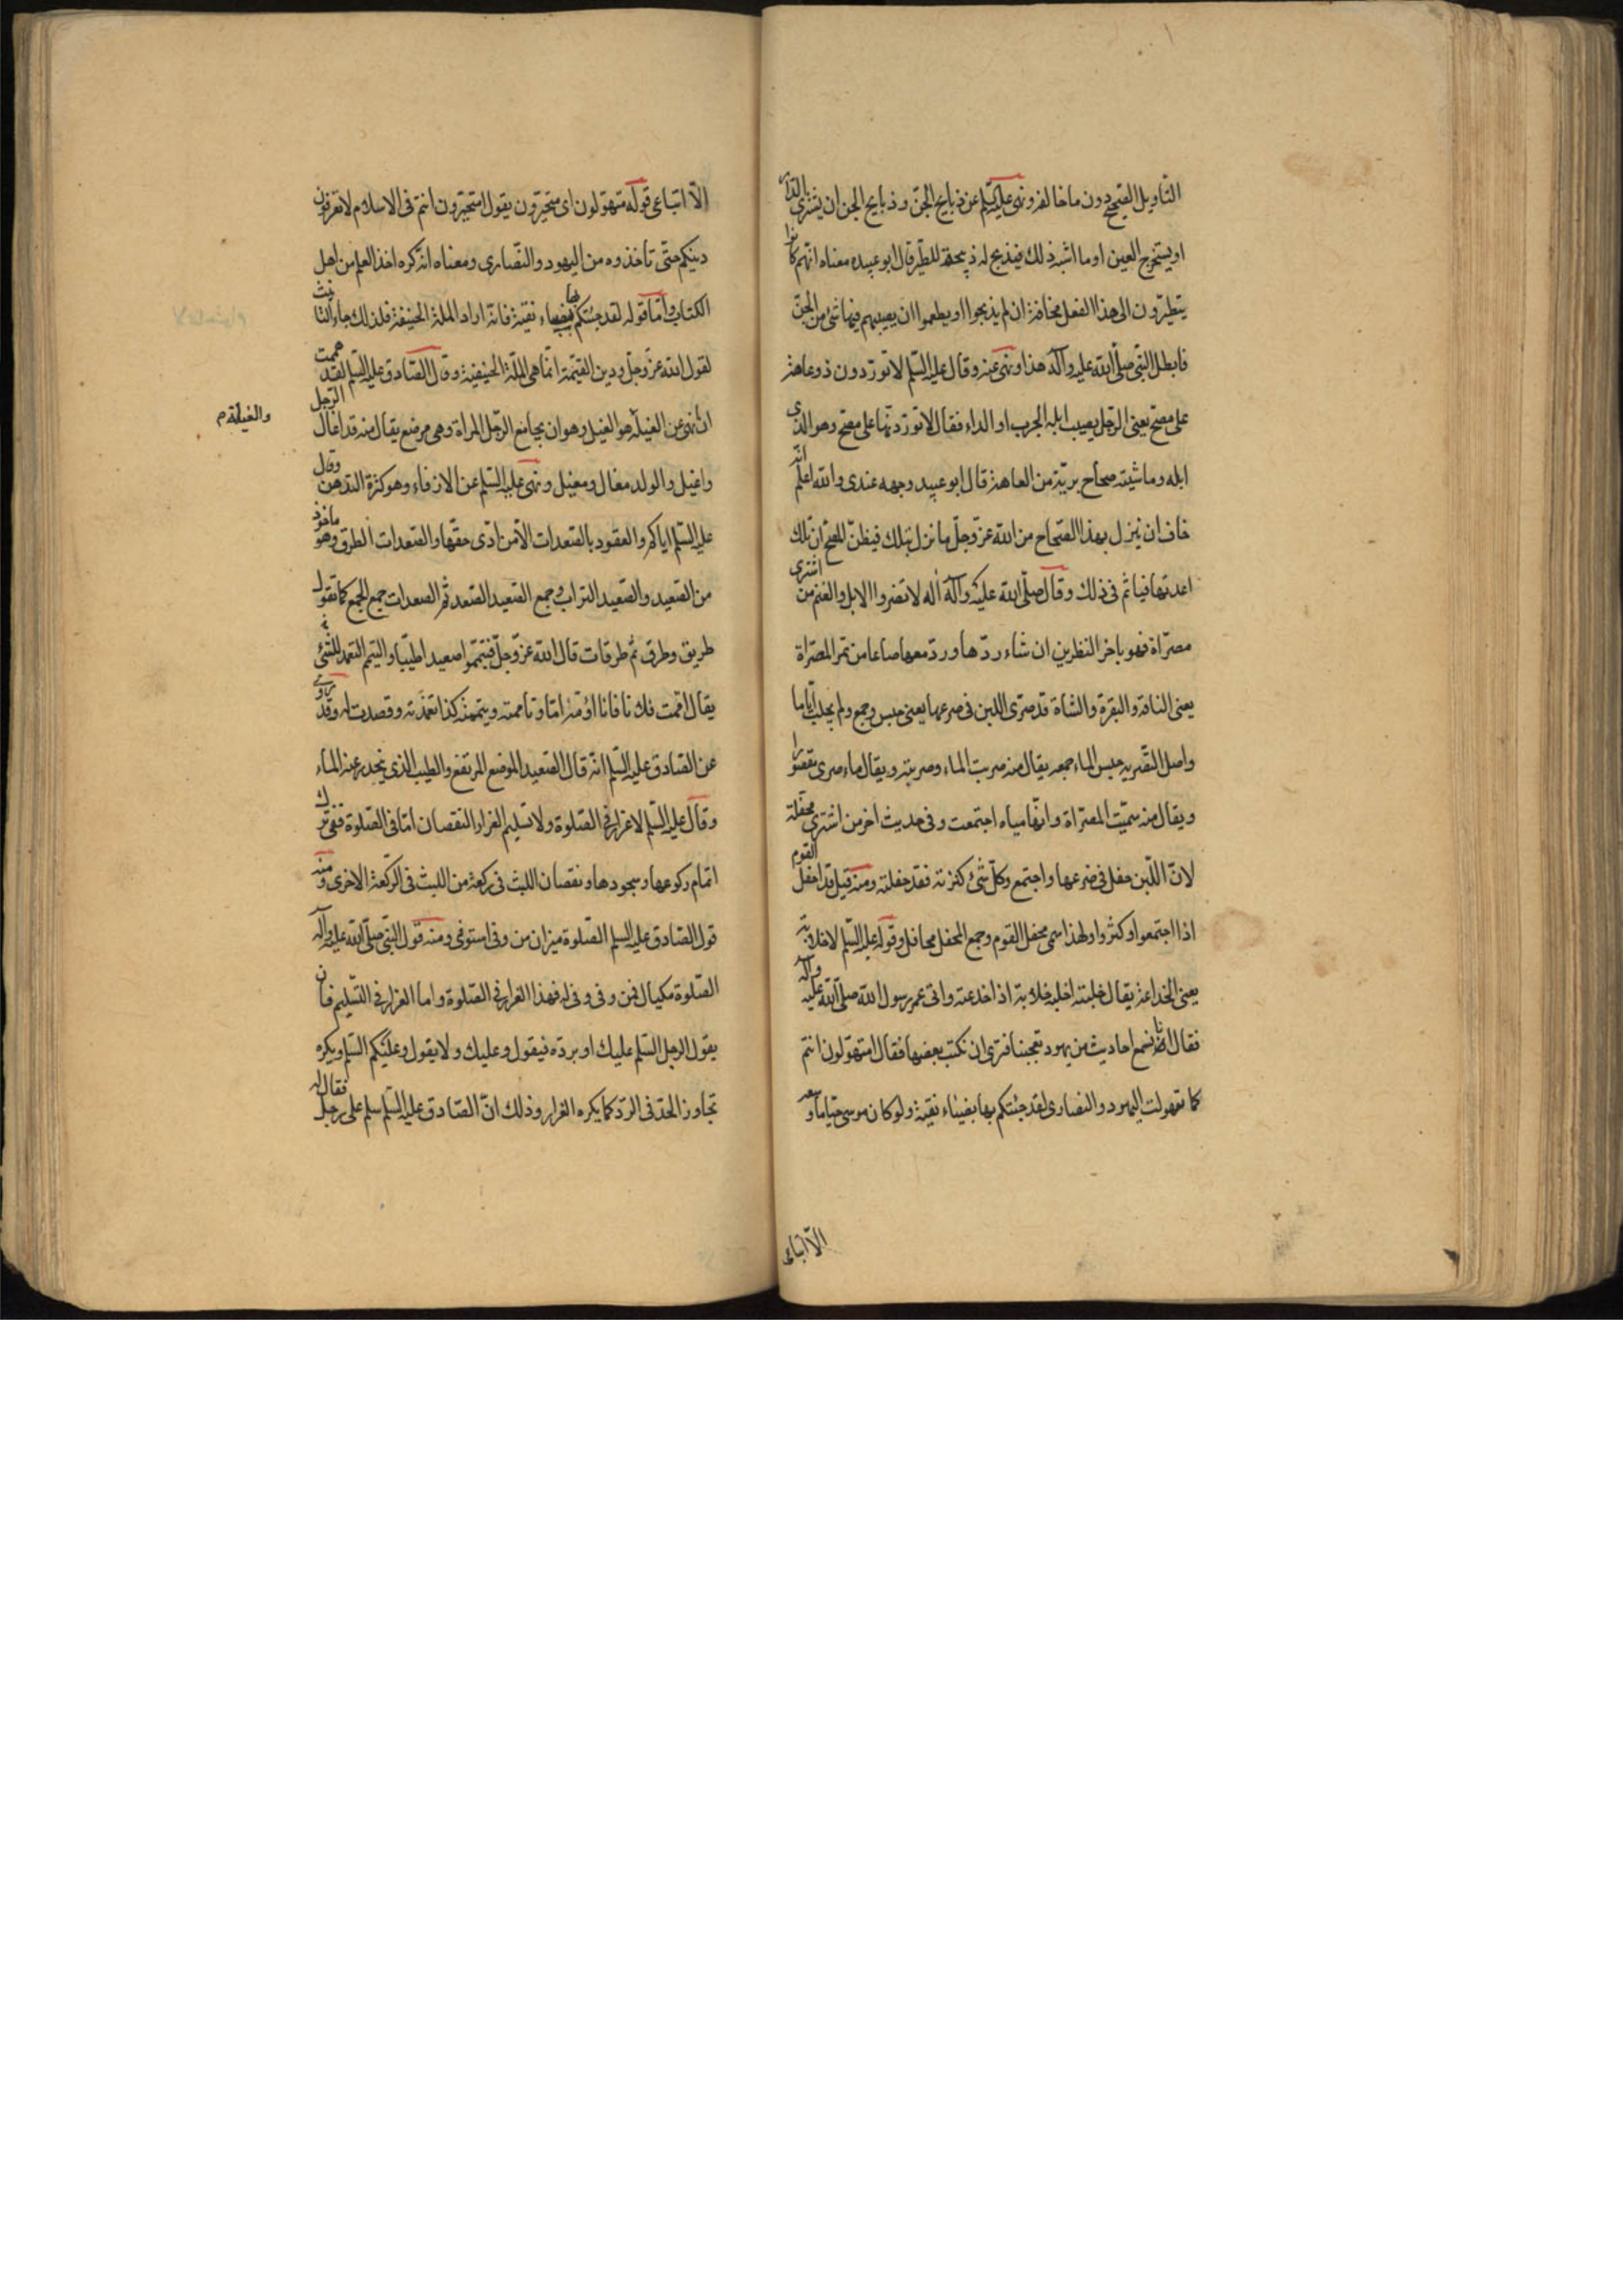 التّأويل القبيح دون ما خالفه ونهى عليه السّلم عن ذبايح الجنّ وذبايح الجن ان يشترى الدّار
او يستخرج العين او ما اشبه ذلك فيذبح له ذبيحة للطّيرة قال ابو عبيده معناه انّهم كانوا
يتطيّرون الى هذا الفعل مخافة ان لم يذبحوا او يطعموا ان يصيبهم فيها شئ من الجنّ
فابطل النّبي صلّى الله عليه وآله هذا ونهى عنه وقال عليه السّلم لا توردن ذو عاهة
على مصحّ يعنى الرّجل يصيب ابله الجرب او الداء فقال لا توردنّها على مصحّ وهو الذى
ابله وماشيته صحاح بريّة من العاهة قال ابو عبيد وجهه عندى والله اعلم انّه
خاف ان ينزل بهذا الصّحاح من الله عزّوجلّ ما نزل بتلك فيظنّ المصحّ ان تلك
اعدتها فياثم فى ذلك وقال صلّى الله عليه وآله لا تصروا الابل والغنم من اشترى
مصرّاة فهو باخر النظرين ان شاء ردّها وردّ معها صاعا من تمر المصرّاة
يعنى الناقة والبقرة والشاة قد صرى اللبن فى ضرعها يعنى حبس وجمع ولم يحلب ايّاما
واصل التّصريه حبس الماء وجمعه يقال منه صريت الماء وصريته ويقال ماء صرى مقصورا
ويقال منه سمّيت المصرّاة وانّها مياه اجتمعت وفى حديث اخر من اشترى محفّلة
لانّ اللّبن حفل فى ضرعها واجتمع وكلّ شئ كثرته فقد حفلته ومنه قيل قد احفل القوم
اذا اجتمعوا وكثروا ولهذا سمى محفل القوم وجمع المحفل محافل وقوله عليه السّلم لا خلابة
يعنى الخداعة يقال خلبته اخلبه خلابة اذا خدعته واتى عمر رسول الله صلّى الله عليه وآله
فقال انا نسمع احاديث من يهود تعجبنا فترى ان نكتب بعضها فقال امتهوّلون انتم
كما تهولت اليهود والنصارى لقد جئتكم بها بيضاء نقيّة ولو كان موسى حيّا ما وسعه
الّا اتباعى
الّا اتباعى قوله متهوّلون اى متحيّرون يقول امتحيّرون انتم فى الاسلام لا تعرفون
دينكم حتّى تأخذوه من اليهود والنّصارى ومعناه انّه كره اخذ العلم من اهل
الكتاب وامّا قوله لقد جئتكم بها بيضاء نقيّة فانّه اراد الملّة الحنيفة فلذلك جاء التانيث
لقول الله عزّوجلّ ودين القيّمة انّما هى الملّة الحنيفية وقال الصّادق عليه السّلم لقد هممت
ان نهى عن الغيلة هو الغيل وهو ان يجامع الرّجل المراة وهى مرضع يقال منه قد اغال الرّجل
والغيلة م
واغيل والولد مغال ومغيل ونهى عليه السّلم عن الارفاء وهو كثرة التدهن وقال
عليه السّلم اياكم والعقود بالصّعدات الّا من ادّى حقّها والصّعدات الطرق وهو ماخوذ
من الصّعيد والصّعيد التراب وجمع الصّعيد الصّعد ثمّ الصعدات جمع الجمع كما تقول
طريق وطرق ثم طرقات قال الله عزّوجلّ فتيمّموا صعيدا طيّبا والتيمّم التعمد للشّئ
يقال امّمت فلانا فانا اؤمّه امّا وتاممته وتيمّمته كذا تعمّدته وقصدت له وقد روى
عن الصّادق عليه السّلم انّه قال الصّعيد الموضع المرتفع والطيب الذى ينحدر عنه الماء
وقال عليه السّلم لا غرار فى الصّلوة ولا تسليم الغرار النقصان امّا فى الصّلوة ففى ترك
اتمام ركوعها وسجودها ونقصان اللبث فى ركعة من اللبث فى الرّكعة الاخرى ومنه
قول الصّادق عليه السلم الصّلوة ميزان من وفى استوفى ومنه قول النّبى صلّى الله عليه وآله
الصّلوة مكيال فمن وفى وفى له فهذا الغرار فى الصّلوة واما الغرار فى التّسليم فان
يقول الرجل السّلم عليك او يردّه فيقول وعليك ولا يقول وعليكم السّلم ويكره
تجاوز الحدّ فى الردّ كما يكره الغرار وذلك انّ الصّادق عليه السّلم سلم على رجل فقال له